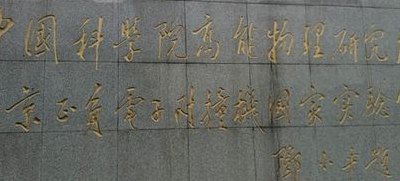 中国科學院高能物理研究所
北京正負電子对撞機国家实驗室
鄧小平題